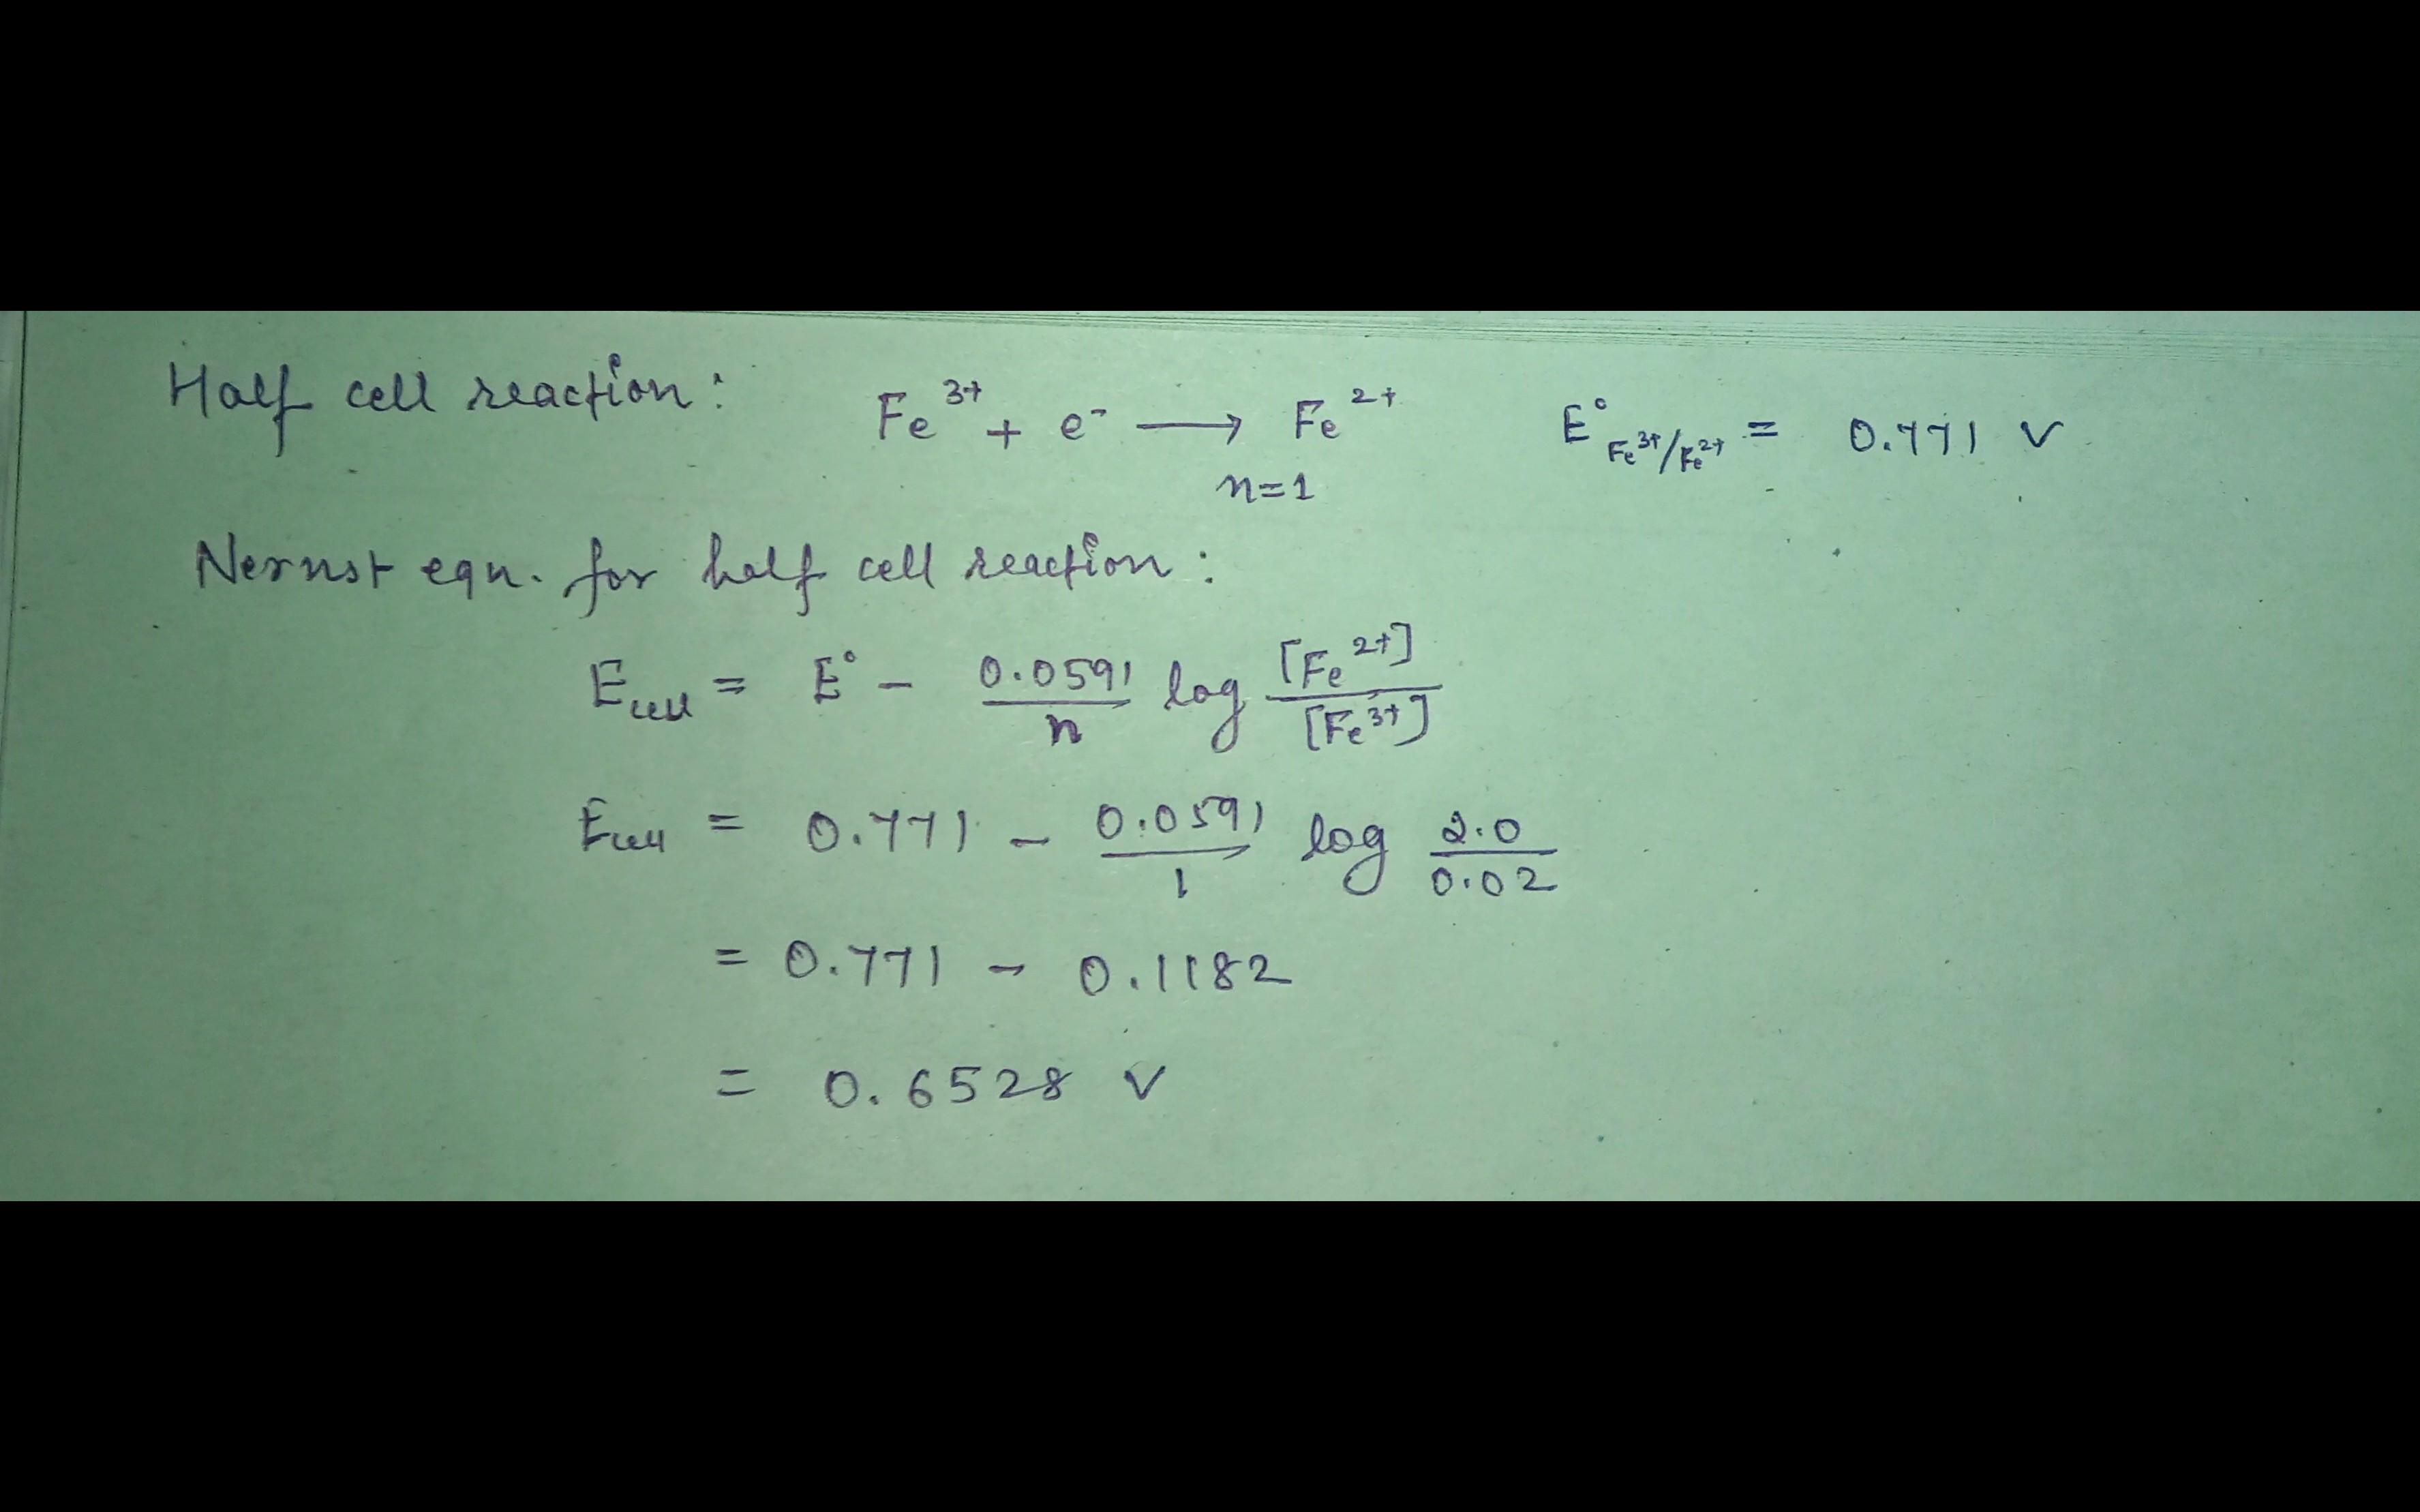 Half cell reaction: Fe³⁺ + e⁻ ⟶ Fe²⁺ E°Fe³⁺/Fe²⁺ = 0.771 V
n=1
Nernst eqn. for half cell reaction:
Ecell = E° - 0.0591/n log [Fe²⁺]/[Fe³⁺]
Ecell = 0.771 - 0.0591/1 log 2.0/0.02
= 0.771 - 0.1182
= 0.6528 V